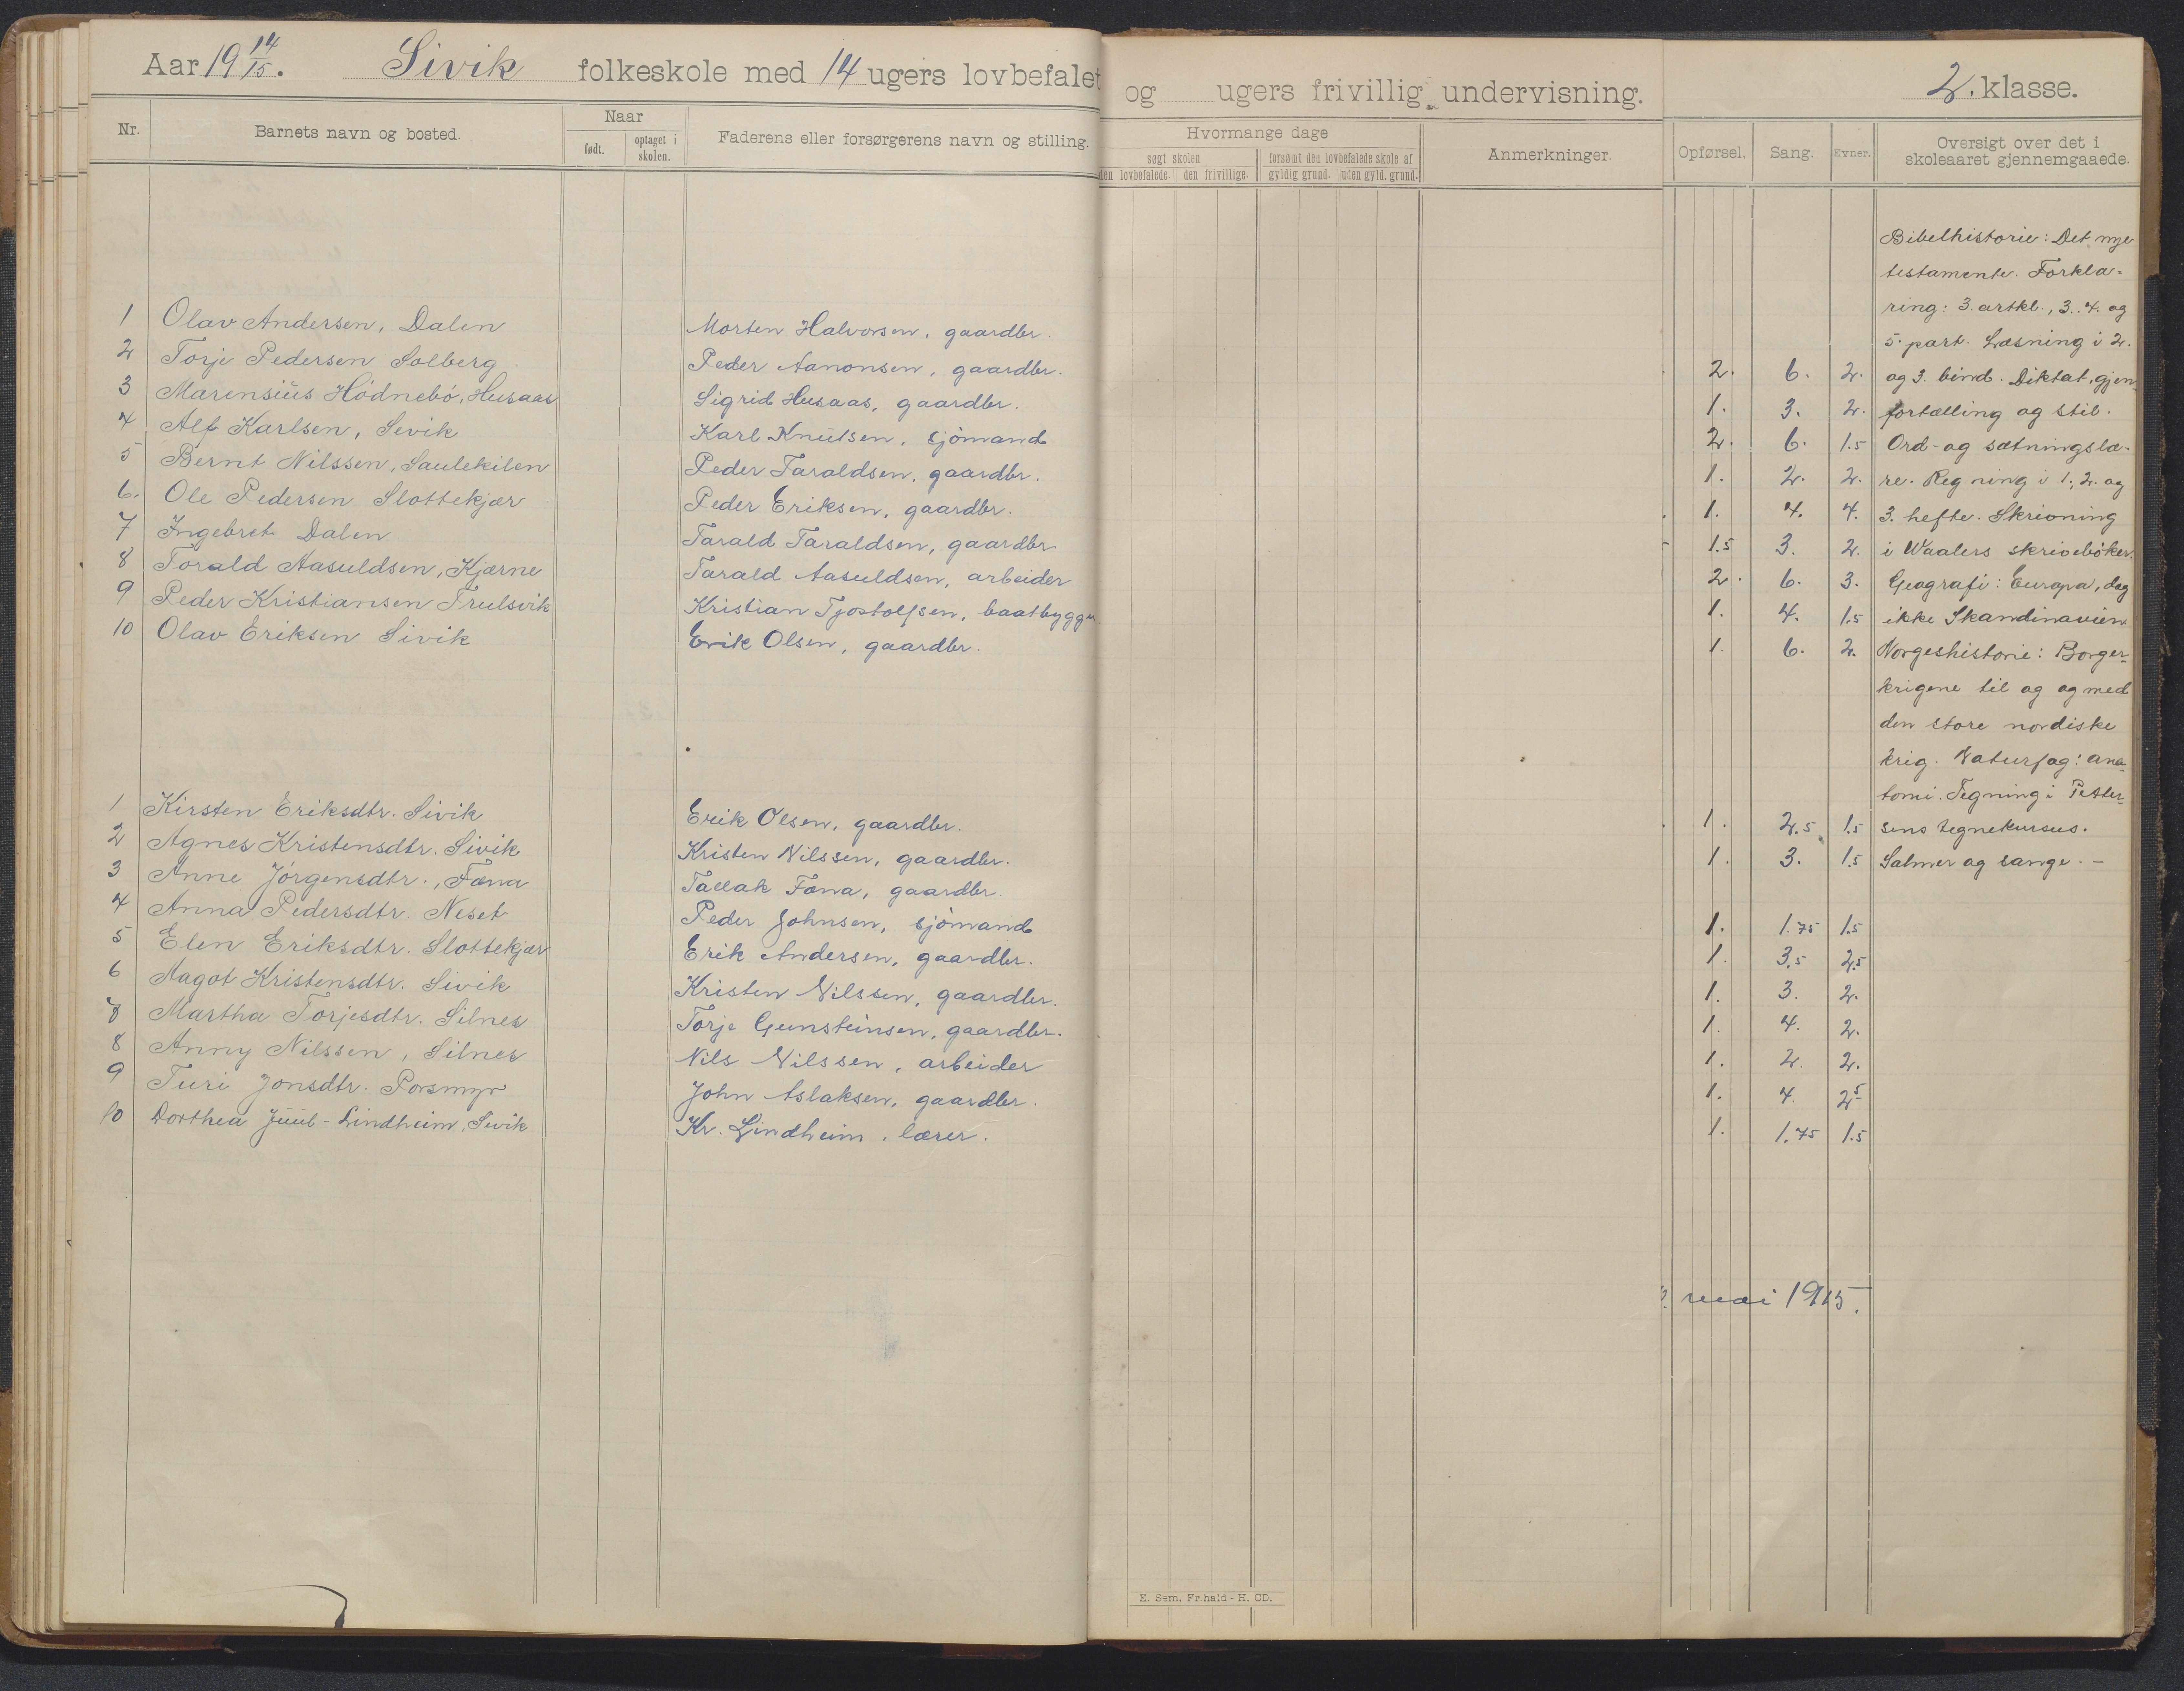 Aar 19 14/15. Sivik folkeskole med 14 ugers lovbefalet og ugers frivillig undervisning. 2. klasse.
Nr. Barnets navn og bosted. Naar født. optaget i skolen. Faderens eller forsørgerens navn og stilling. Hvormange dage søgt skolen den lovbefalede. den frivillige. forsømt den lovbefalede skole af gyldig grund. uden gyld. grund. Anmerkninger. Opførsel. Sang. Evner. Oversigt over det i skoleaaret gjennemgaaede.
1 Olav Andersen, Dalen Morten Halvorsen, gaardbr.
2 Torje Pedersen Solberg Peder Aanonsen, gaardbr. 2. 6. 2.
3 Marensius Hödnebö, Husaas Sigrid Husaas, gaardbr. 1. 3. 2.
4 Alf Karlsen, Sevik Karl Knutsen, sjömand 2. 6. 1.5
5 Bernt Nilssen, Saulekilen Peder Taraldsen, gaardbr. 1. 2. 2.
6. Ole Pedersen Slottekjær Peder Eriksen, gaardbr. 1. 4. 4.
7 Ingebret Dalen Tarald Taraldsen, gaardbr. 1.5 3. 2.
8 Torald Aasuldsen, Kjærne Tarald Aasuldsen, arbeider 2. 6. 3.
9 Peder Kristiansen Trulsvik Kristian Tjostolfsen, baatbygger 1. 4. 1.5
10 Olav Eriksen Sivik Erik Olsen, gaardbr. 1. 6. 2.
1 Kirsten Eriksdtr. Sivik Erik Olsen, gaardbr. 1. 2.5 1.5
2 Agnes Kristensdtr. Sivik Kristen Nilssen, gaardbr. 1. 3. 1.5
3 Anne Jörgensdtr., Fæna Tallak Fæna, gaardbr.
4 Anna Pedersdtr. Neset Peder Johnsen, sjömand 1. 1.75 1.5
5 Elen Eriksdtr. Slottekjær Erik Andersen, gaardbr. 1. 3.5 2.5
6 Aagot Kristensdtr. Sivik Kristen Nilssen, gaardbr. 1. 3. 2.
7 Martha Torjesdtr. Silnes Torje Gunsteinsen, gaardbr. 1. 4. 2.
8 Anny Nilssen, Silnes Nils Nilssen, arbeider 1. 2. 2.
9 Turi Jonsdtr. Porsmyr John Aslaksen, gaardbr. 1. 4. 2.5
10 Dorthea Juul-Lindheim, Sivik Kr. Lindheim, lærer. 1. 1.75 1.5
Bibelhistorie: Det nye
testamente. Forkla-
ring: 3. artkl., 3. 4. og
5. part. Læsning i 2.
og 3. bind. Diktat, gjen-
fortælling og stil.
Ord- og sætningslæ-
re. Regning i 1., 2. og
3. hefte. Skrivning
i Waalers skrivebøker.
Geografi: Europa, dog
ikke Skandinavien
Norgeshistorie: Borger-
krigene til og og med
den store nordiske
krig. Naturfag: ana-
tomi. Tegning i Petter-
sens tegnekursus.
Salmer og sange. –
mai 1915.
E. Sem. Fr.hald - H. OD.